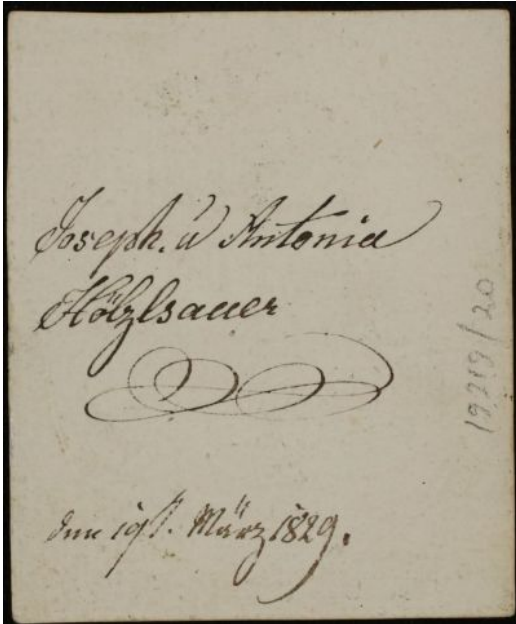 Joseph. u Antonia
Hölzlsauer
den 19t. März 1829.
19219/20